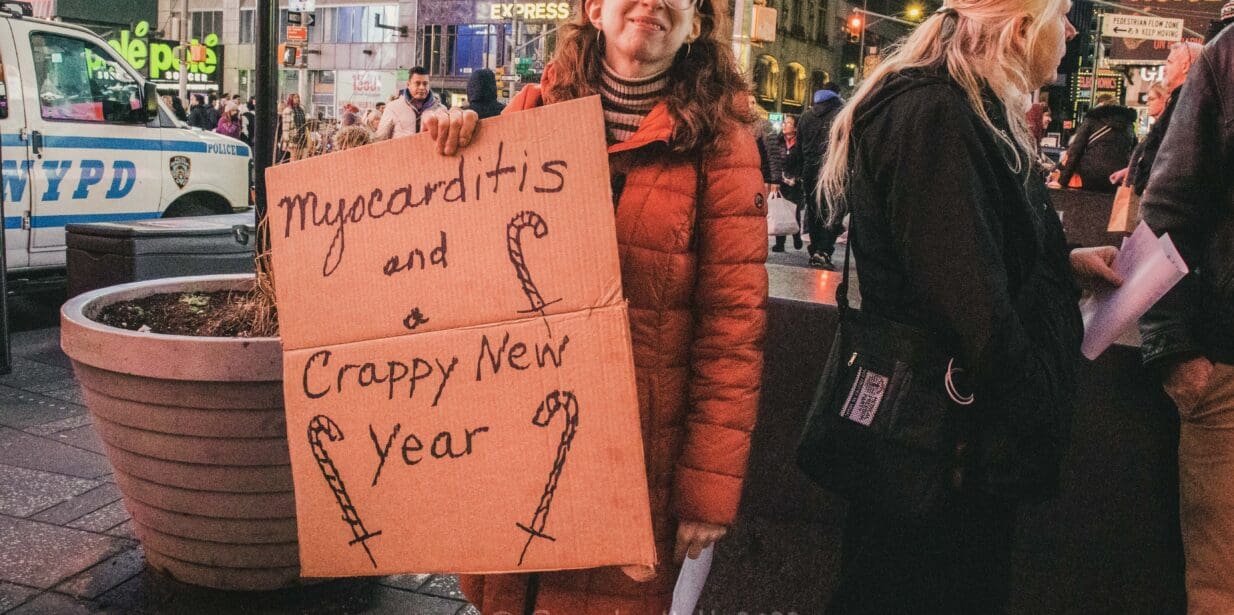 épolé
POLICE
NYPD
EXPRESS
PEDESTRIAN FLOW ZONE
KEEP MOVING
Myocarditis
and
a
Crappy New
Year